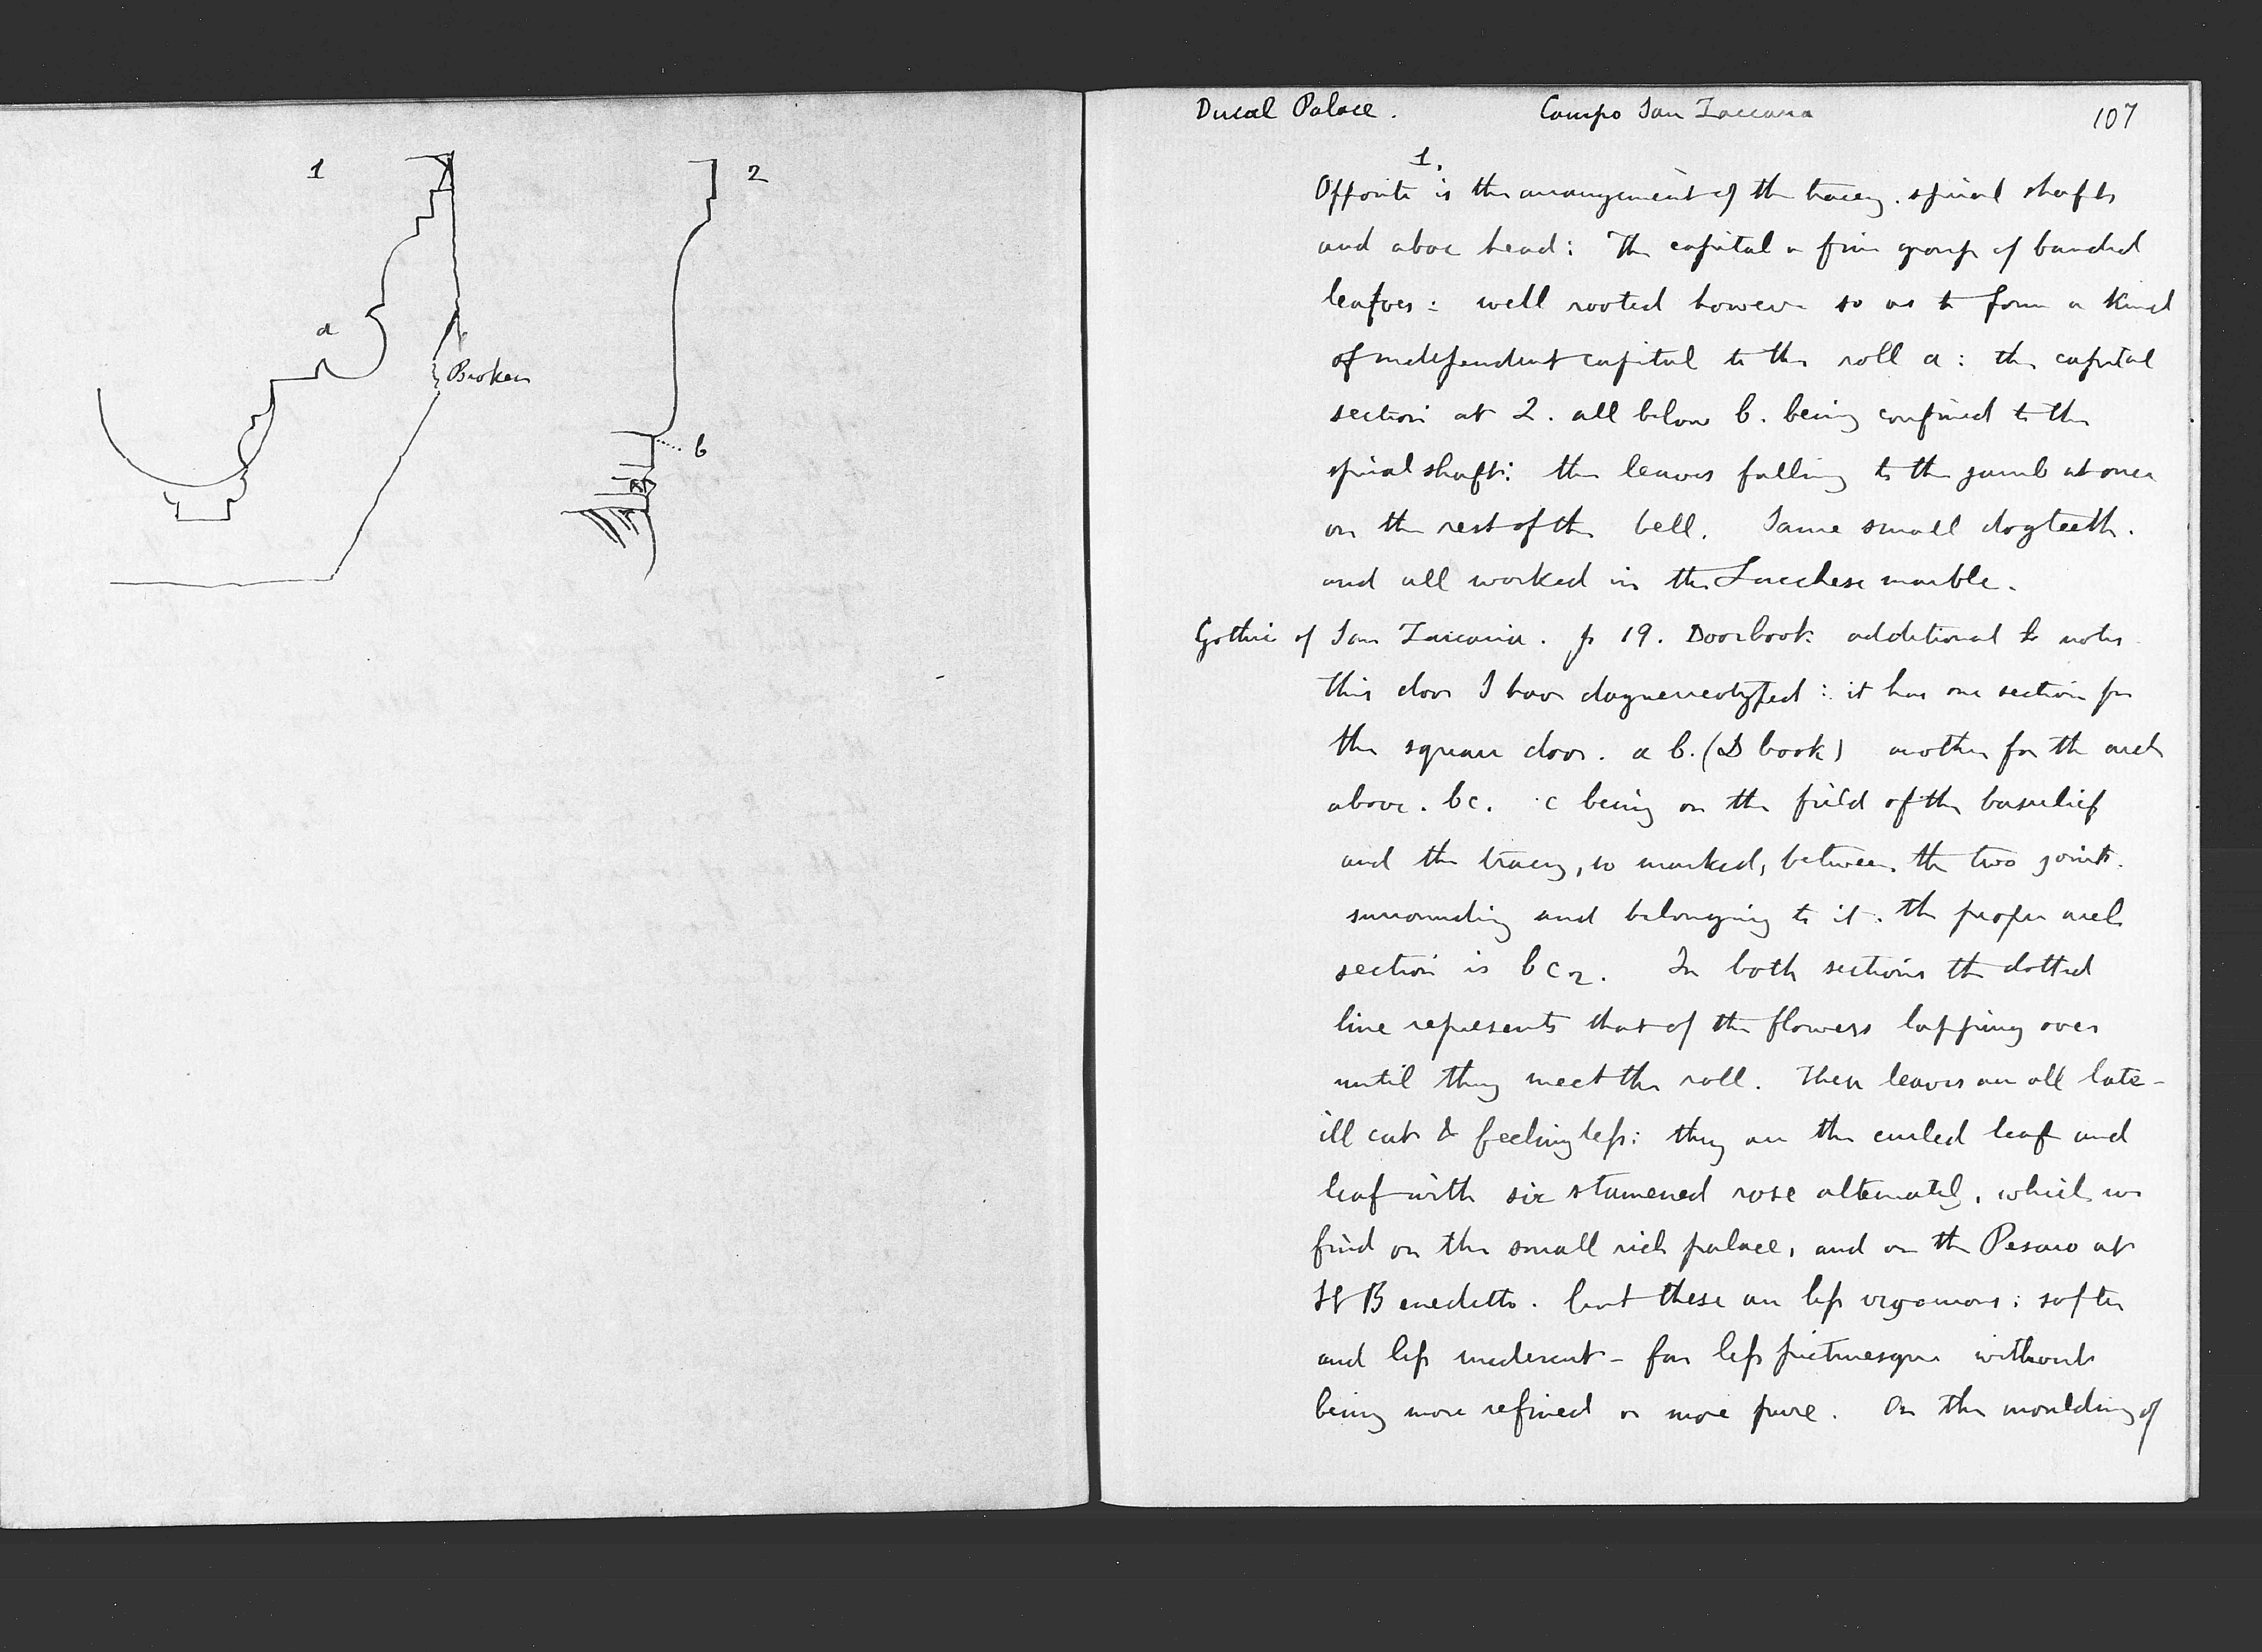 1
2
a
Broken
b
Ducal Palace. Campo San Zaccaria 107
1.
Opposite is the arrangement of the tracery. spiral shafts
and above head: The capital a fine group of banded
leafves: well rooted however so as to form a kind
of independent capital to the roll a: the capital
section at 2. all below b. being confined to the
spiral shaft: the leaves falling to the jamb at once
on the rest of the bell. Same small dogteeth.
and all worked in the Lucchese marble.
Gothic of San Zaccaria. p 19. Doorbook additional to notes
this door I have daguerreotyped: it has one section for
the square door. a b. (D book) another for the arch
above. bc. c being on the field of the basrelief
and the tracery, so marked, between the two joints.
surrounding and belonging to it. the proper arch
section is b c 2. In both sections the dotted
line represents that of the flowers lapping over
until they meet the roll. These leaves are all late -
ill cut & feelingless: they are the curled leaf and
leaf with six stamened rose alternately, which we
find on the small rich palace, and on the Pesaro at
St Benedetto. but these are less vigorous: softer
and less undercut - far less picturesque without
being more refined or more pure. On the moulding of